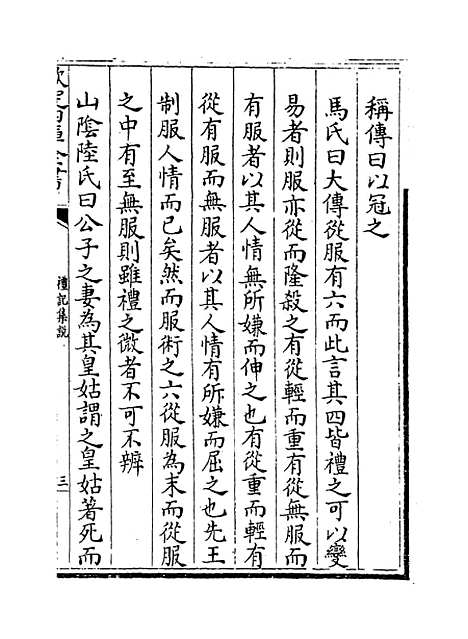 稱傳曰以冠之
馬氏曰大傳從服有六而此言其四皆禮之可以變
易者則服亦從而隆殺之有從輕而重有從無服而
有服者以其人情無所嫌而伸之也有從重而輕有
從有服而無服者以其人情有所嫌而屈之也先王
制服人情而已矣然而服術之六從服為末而從服
之中有至無服則雖禮之微者不可不辨
山陰陸氏曰公子之妻為其皇姑謂之皇姑著死而
欽定四庫全書
禮記集説
三